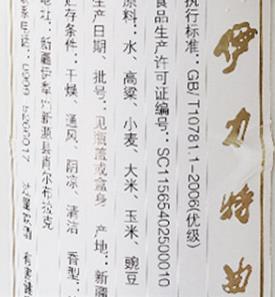 伊力特曲
执行标准：GB/T10781.1-2006(优级)
食品生产许可证编号：SC11565402500010
原料：水、高粱、小麦、大米、玉米、豌豆
生产日期、批号：见瓶盖或盒身 产地：新疆
贮存条件：干燥、通风、阴凉、清洁 香型：
地址：新疆伊犁州新源县肖尔布拉克